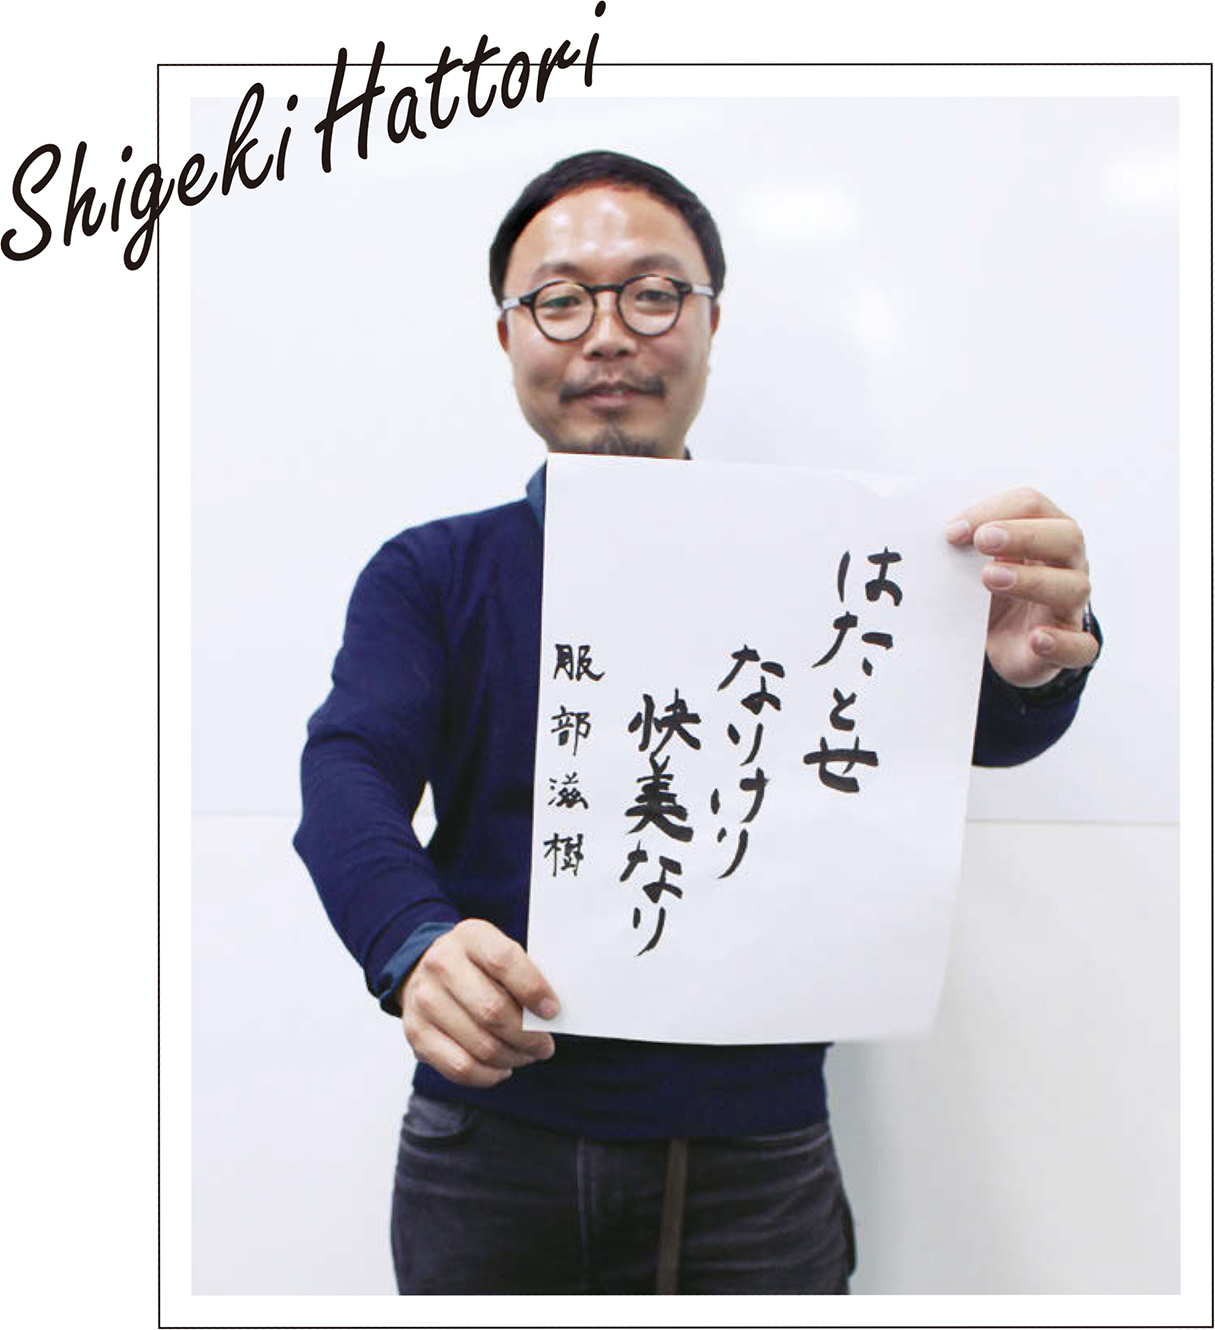 Shigeki Hattori
はたとせ
なりけり
快美なり
服部滋樹